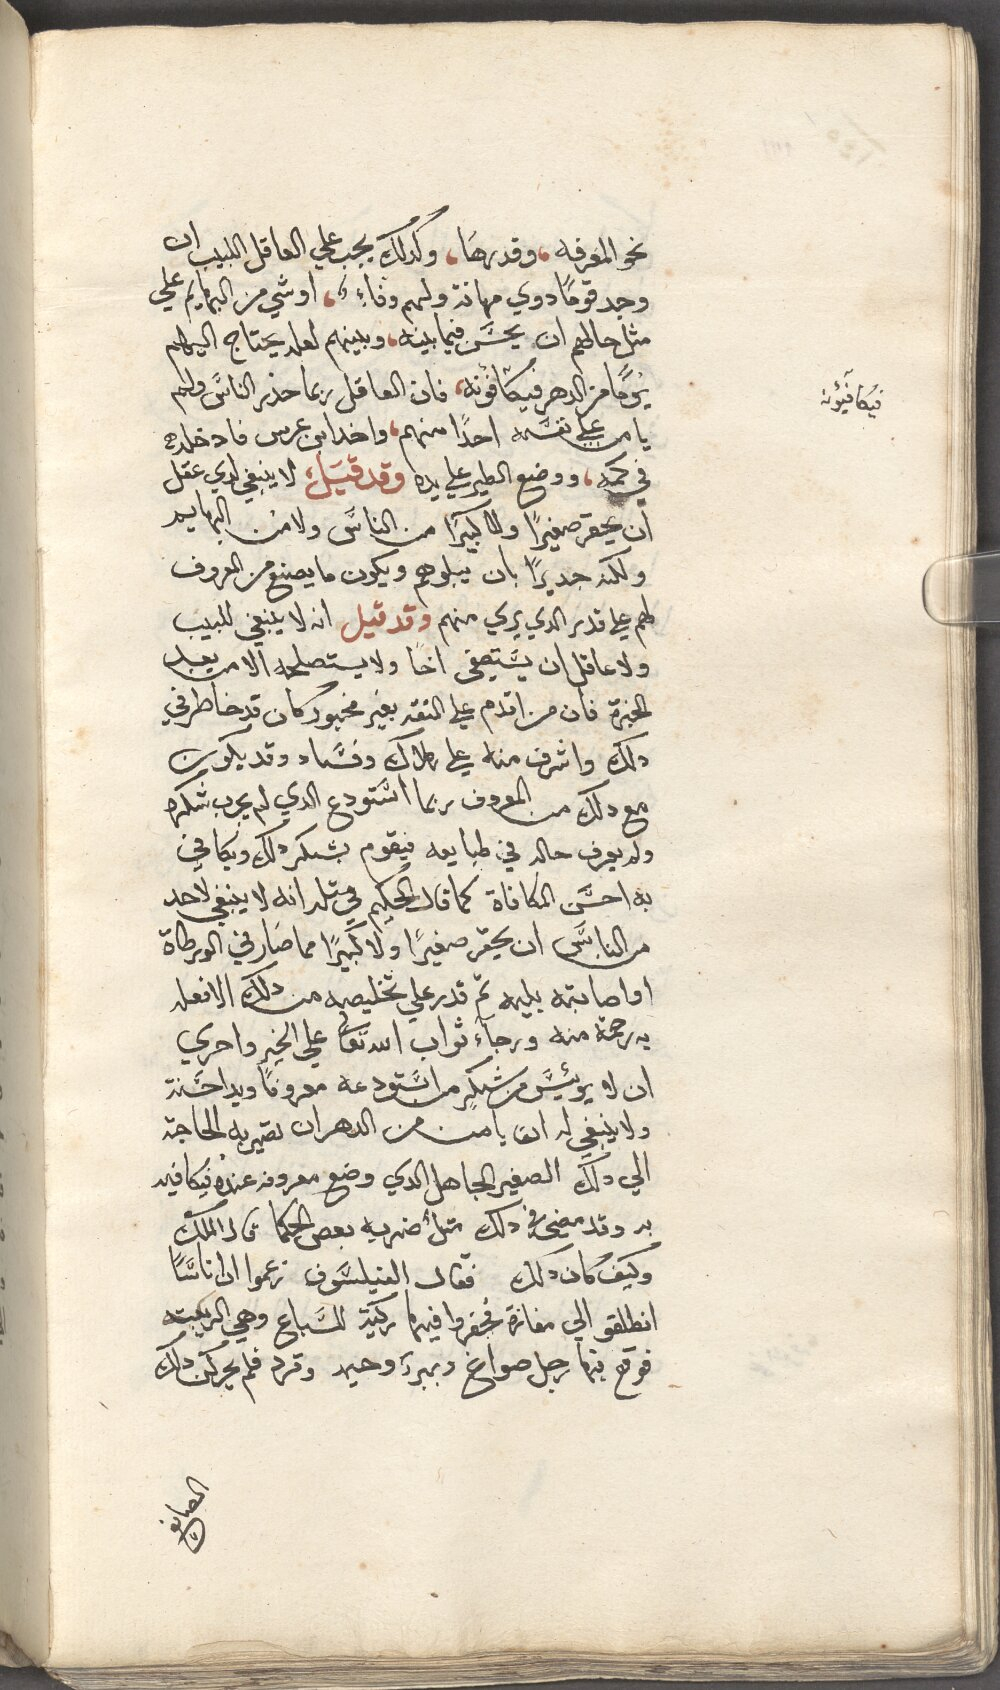 نحو المعرفه، وقدرها، وكدلك يجب علي العاقل اللبيب ان
وجد قومًا دوي مهانة ولهم وفاء، اوشي من البهايم علي
مثل حالهم ان يحسن فيما بينه، وبينهم لعله يحتاج اليهم
يومًا من الدهر فيكافونه، فان العاقل ربما حذر الناس ولم
يامن علي نفسه احدًا منهم، واخد ابن عرس فادخله
في كمه، ووضع الطير علي يده وقد قيل، لا ينبغي لدي عقل
ان يحقر صغيرًا ولا كبيرًا من الناس ولا من البهايم
ولكنه جديرًا بان يبلوهم ويكون ما يصنع من المعروف
لهم علي قدر الدي يري منهم وقد قيل انه لا ينبغي للبيب
ولا عاقل ان يستصفي اخا ولا يستصلحه الا من بعد
الخبرة فان من اقدم علي الثقه بغير مخبور كان قد خاطر في
دلك واشرف منه علي هلاك وفساد وقد يكون
مع دلك من المعروف ربما استودع الدي لم يجرب شكره
ولم يعرف حاله في طبايعه فيقوم بشكر دلك ويكافي
به احسن المكافاة كما قال الحكيم في مثله انه لا ينبغي لاحد
من الناس ان يحقر صغيرًا ولا كبيرًا مما صار في الورطاة
او اصابته بليه ثم قدر علي تخليصه من دلك الا فعله
به رحمة منه ورجآء ثواب الله تعالي علي الخير واحري
ان لا يوئيس من شكر من استودعه معروفًا ويدا حسنة
ولا ينبغي له ان يامن من الدهر ان تصير به الحاجة
الي دلك الصغير الجاهل الدي وضع معروفه عنده فيكافيه
به وقد مضي في دلك مثلاً ضربه بعض الحكما قال الملك
وكيف كان دلك فقال الفيلسوف زعموا ان اناسًا
انطلقو الي مفازة فحفروا فيها ركية للسباع وهي الزبيه
فوقع فيها رجل صواغ وببر وحيه وقرد فلم يحركن دلك
فيكافيونه
الصايغ